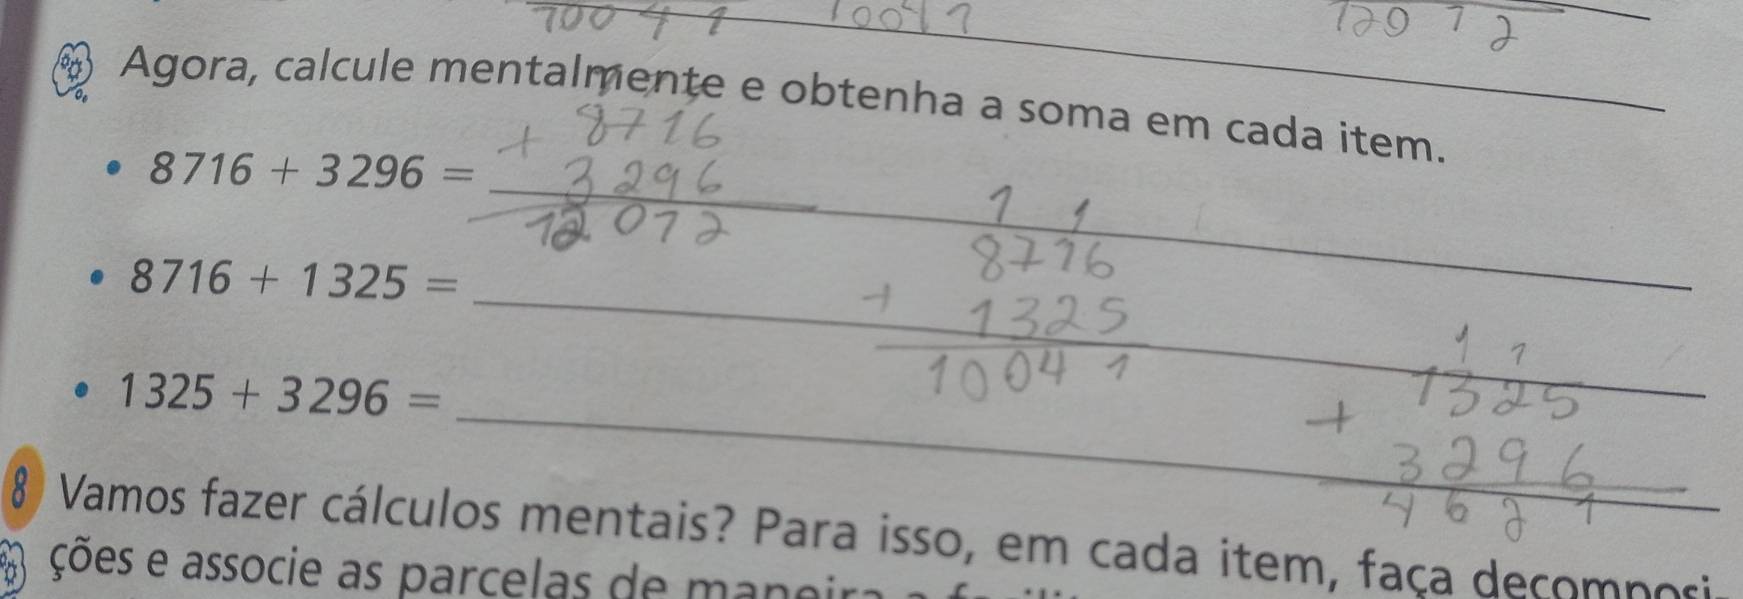 10041 10041 12012
Agora, calcule mentalmente e obtenha a soma em cada item.
+ 8716
• 8716 + 3296 = 3296
12012
1 1
8716
• 8716 + 1325 =
+ 1325
10041
1 1
1325
• 1325 + 3296 =
+ 3296
4621
8 Vamos fazer cálculos mentais? Para isso, em cada item, faça decomposi-
ções e associe as parcelas de maneira a